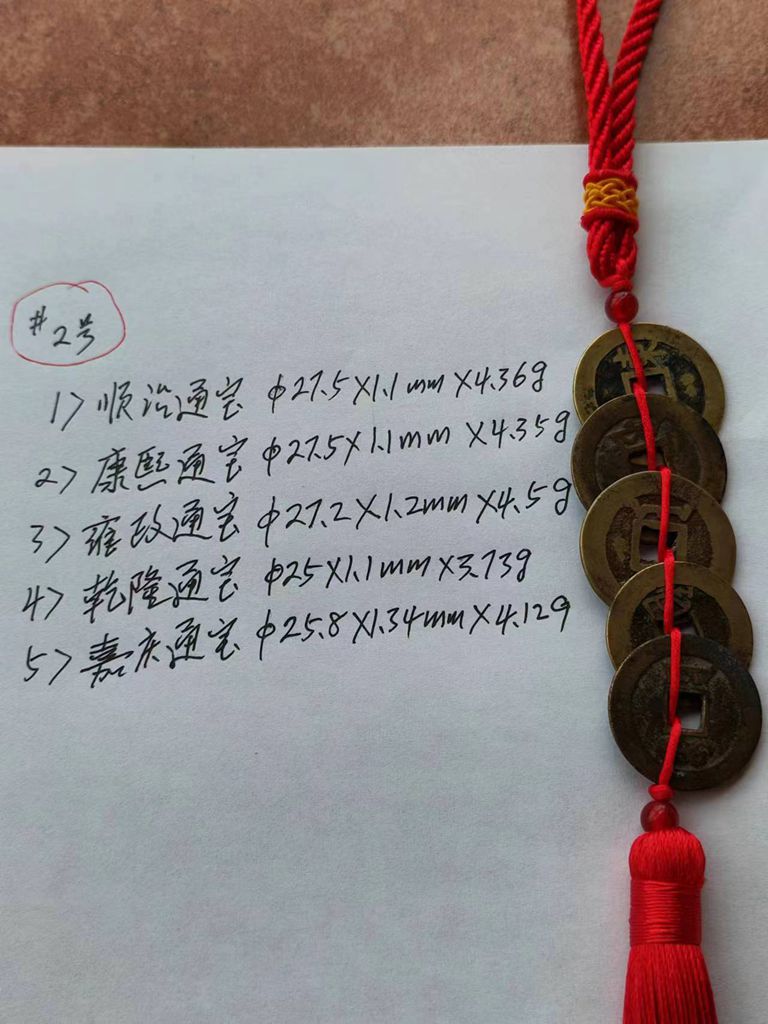 #2号
1) 顺治通宝 φ27.5×1.1mm×4.36g
2) 康熙通宝 φ27.5×1.1mm×4.35g
3) 雍正通宝 φ27.2×1.2mm×4.5g
4) 乾隆通宝 φ25×1.1mm×3.73g
5) 嘉庆通宝 φ25.8×1.34mm×4.12g